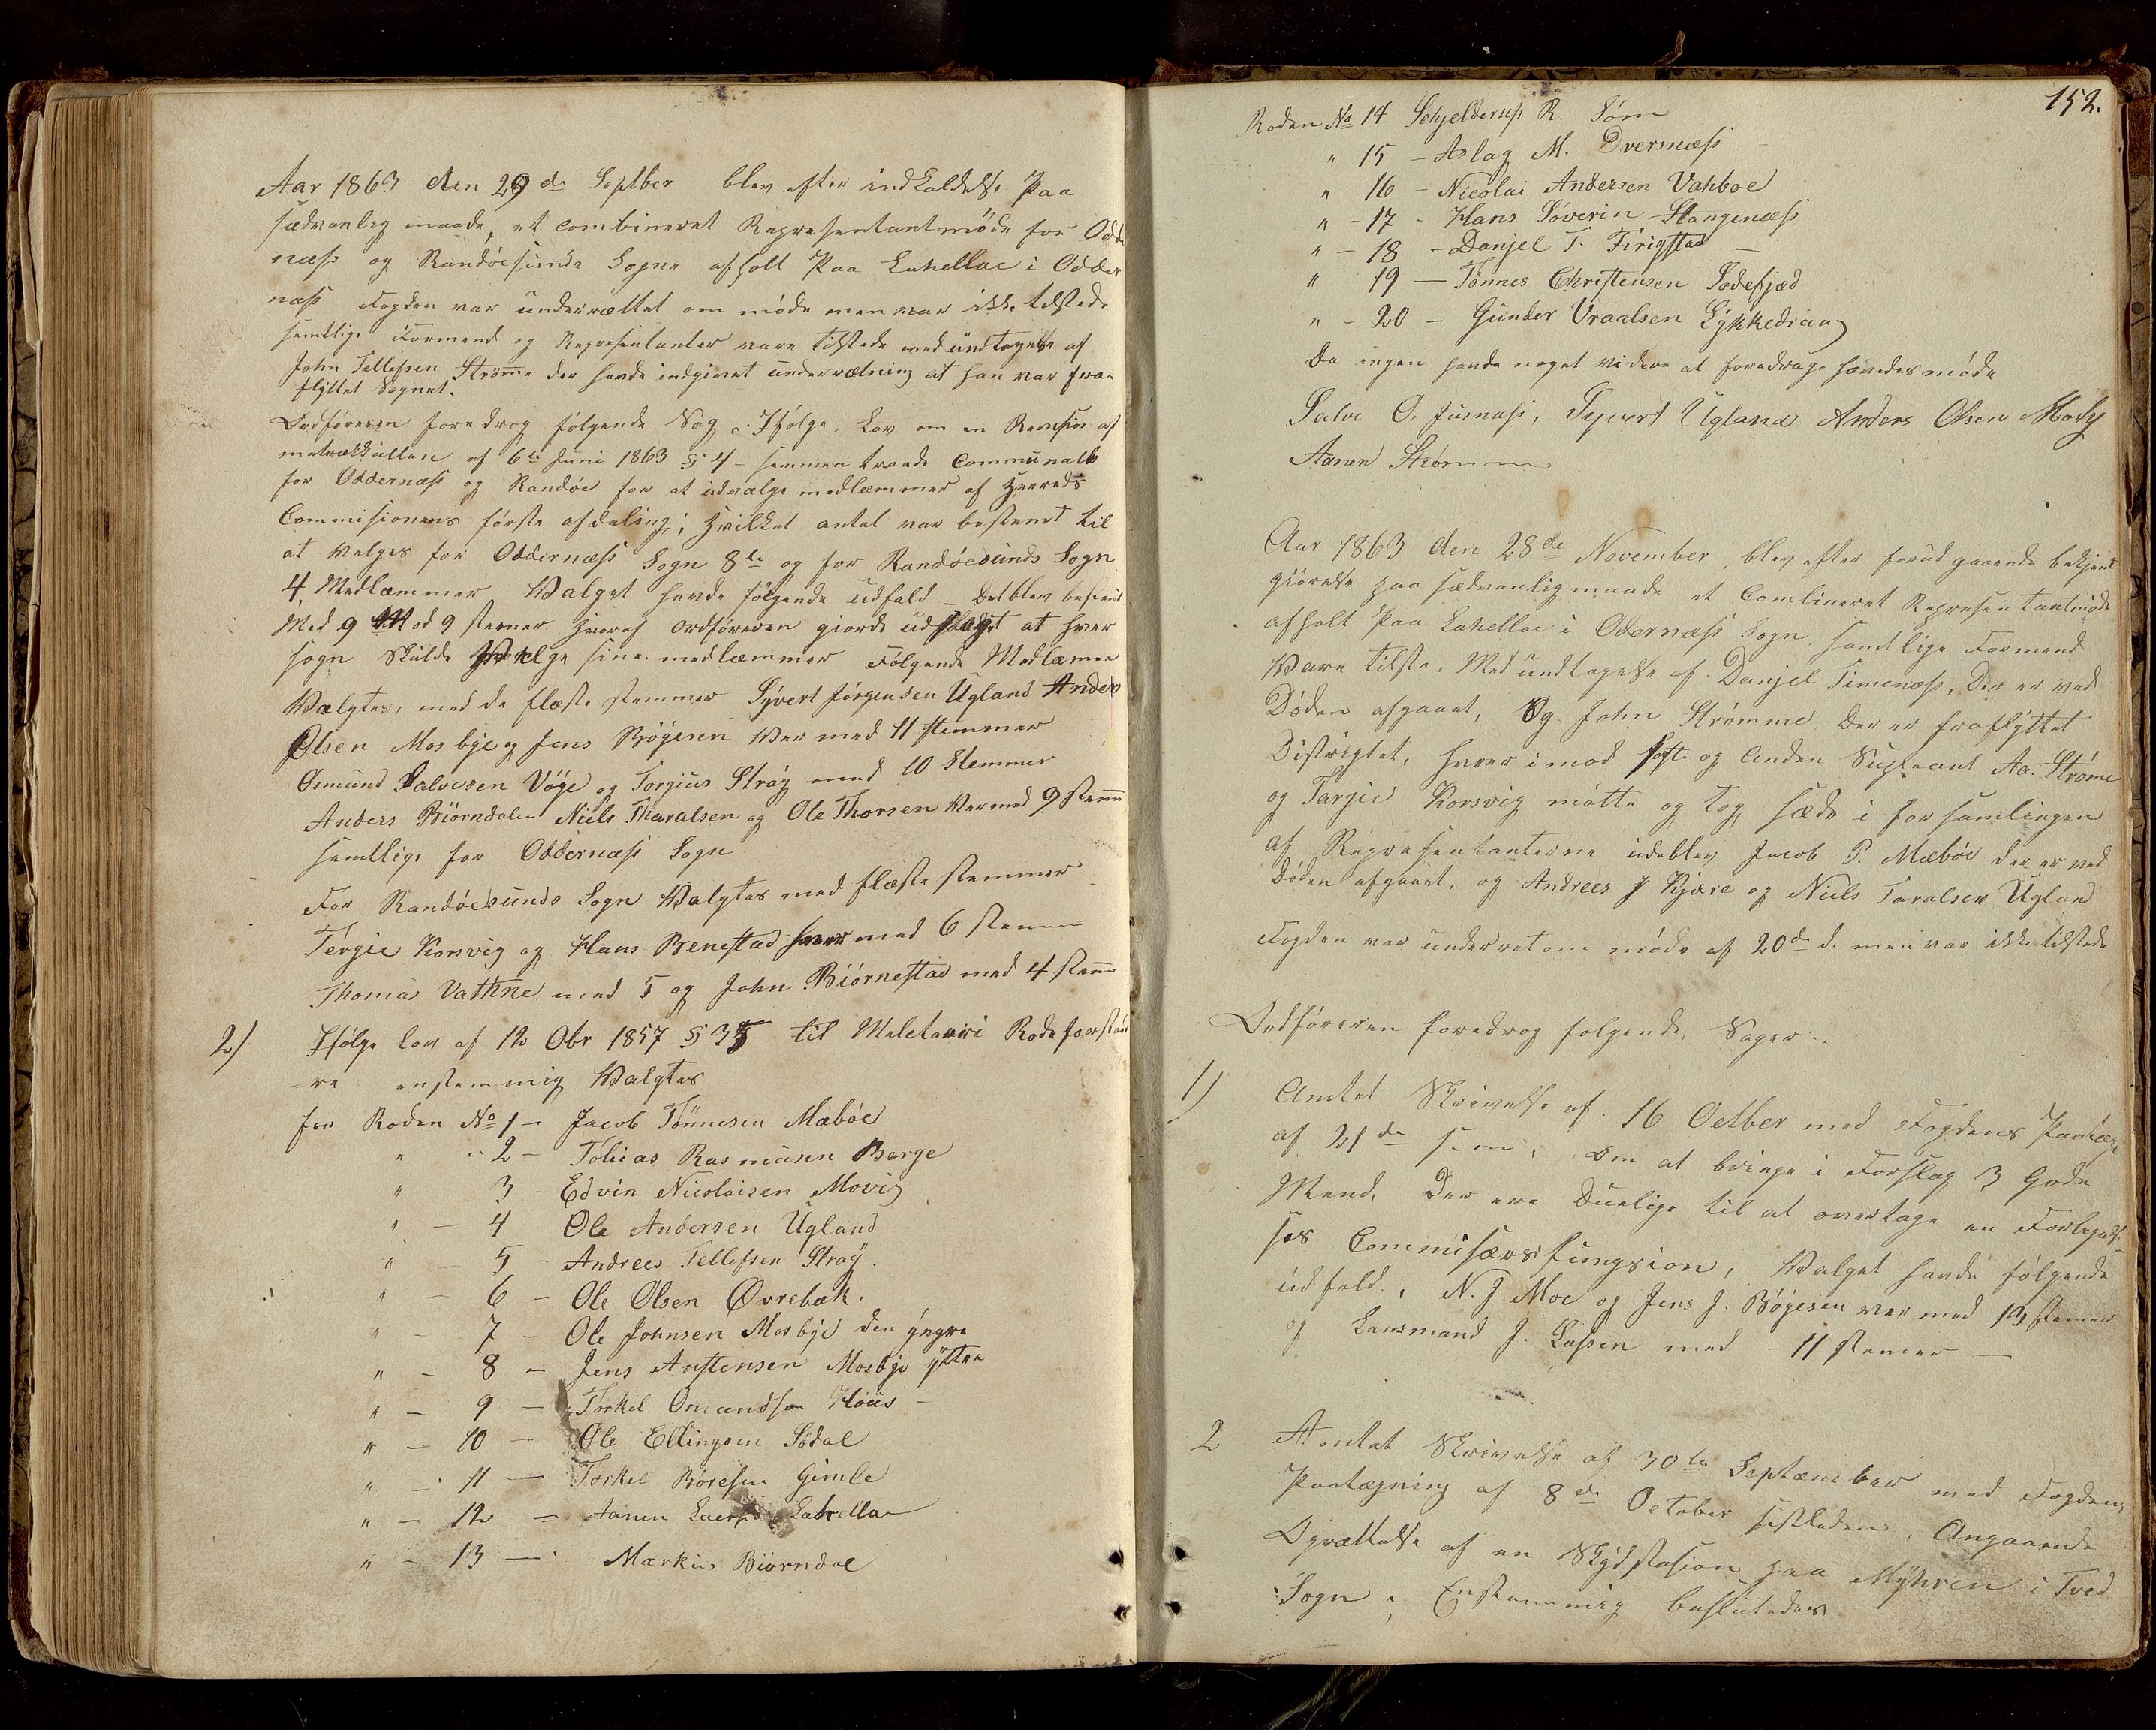 Aar 1863 den 29de Septber blev efter indkaldelse Paa
sædvanlig maade, et Combineret Repræsentantmöde for Odd
næss og Randöesunds Sogne afholt Paa Lahellae i Odder
næss Fogden var underrættet om möde men var ikke tilstede
samtlige Formend og Repræsentanter vare tilstede med undtagelse af
John Tellefsen Strömme der havde indgivet underretning at han var fra-
flyttet Sognet.
Ordföreren foredrog fölgende Sag. Ifölge Lov om en Revision af
matrikkullen af 6te Juni 1863 § 4 - sammen traade Communalb
for Oddernæss og Randöe for at udvælge medlæmmer af Herreds
Commisionens förste afdeling; Hvilket antal var bestemt til
at Valges for Oddernæss Sogn 8te og for Randöesunds Sogn
4 Medlæmmer Valget havde fölgende udfald - Det blev bestemt
Med 9 Mod 9 stemer hvoraf ordföreren giorde udslaget at hver
sogn skulde Vælge sine medlæmmer Fölgende Medlæmer
Valgtes, med de flæste stemmer Syvert Jörgensen Ugland Anders
Olsen Mosbye og Jens Böyesen Var med 11 stemmer
Osmund Salvesen Vöge og Torgius Stray med 10 Stemmer
Anders Biörndalen Niels Tharalsen og Ole Thorsen Var med 9 stemm
samtlige for Oddernæss Sogn
For Randöesunds Sogn Valgtes med flæste stemmer
Tergie Korsvig og Hans Benestad hver med 6 stemm
Thomas Vathne med 5 og John Biörnestad med 4 stemm
2) Ifölge lov af 12 Obr 1857 § 35 til Meletairi Rodeforstan
-re enstemmig Valgtes
for Roden No 1 - Jacob Tönnesen Mæböe
" " 2 - Tobias Rasmusen Berge
" 3 - Edvin Nicolaisen Movig
" - 4 Ole Andersen Ugland
" - 5 - Andrees Tellefsen Stray.
" - 6 - Ole Olsen Øvrebæk.
" - 7 - Ole Johnsen Mosbye den yngre
" - 8 - Jens Austensen Mosbye yttre
" - 9 - Torkel Omundsen Höiis -
" - 10 - Ole Ellingsen Södal
" - 11 - Torkel Böresen Gimle
" - 12 - Aanen Lahella
" - 13 - Markus Biörndal
152.
Roden No 14 Schjelderup R. Söm
" 15 - Aslag M. Dversnæss
" 16 - Nicolai Andersen Vahboe
" - 17 - Hans Söverin Stangenæss
" - 18 - Danjel T. Firigstad -
" 19 - Tönnes Christensen Sodefjed
" - 20 - Gunder Vraalsen Lykkedrang
Da ingen havde noget videre at foredrage hævedes möde
Salve O. Jusnæss, Syvert Ugland Anders Olsen Mosby
Aanen Strömme
Aar 1863 den 28de November, blev efter forud gaaende bekjend
giörelse paa sædvanlig maade et Combineret Repræsentantmöde
afholt Paa Lahellae i Odernæss Sogn. samtlige Formend
Vare tilste. Med undtagelse af Danjel Timenæss, Der er ved
Döden afgaaet, Og John Strömme Der er fraflyttet
Distrigtet, hvor imod förste og Anden Supleant Aa. Ströme
og Targie Korsvig mötte og tog sæde i forsamlingen
af Repræsentanterne udeblev Jacob P. Mæböe der er ved
Döden afgaaet. og Andrees J Kjære og Niels Taralsen Ugland
Fogden var underret om möde af 20de d. men var ikke tilstede
Ordföreren foredrog folgende Sager..
1) Amtet Skrivelse af 16 Octber med Fogdens Paateg.
af 21de s. m. Om at bringe i Forslag 3 Gode
Mend, Der ere Duelige til at overtage en Forligel-
ses Commisærsfungsion, Valget havde fölgende
udfald, N. J. Moe og Jens J. Böyesen var med 13 stemer
og Lensmand J. Lassen med 11 stemer -
2 Amtet Skrivelse af 30te September med Fogdens
Paategning af 8de October sistleden, Angaaende
Oprættelse af en Skydstasion paa Myhren i Tved
Sogn, Enstemmig besluttedes